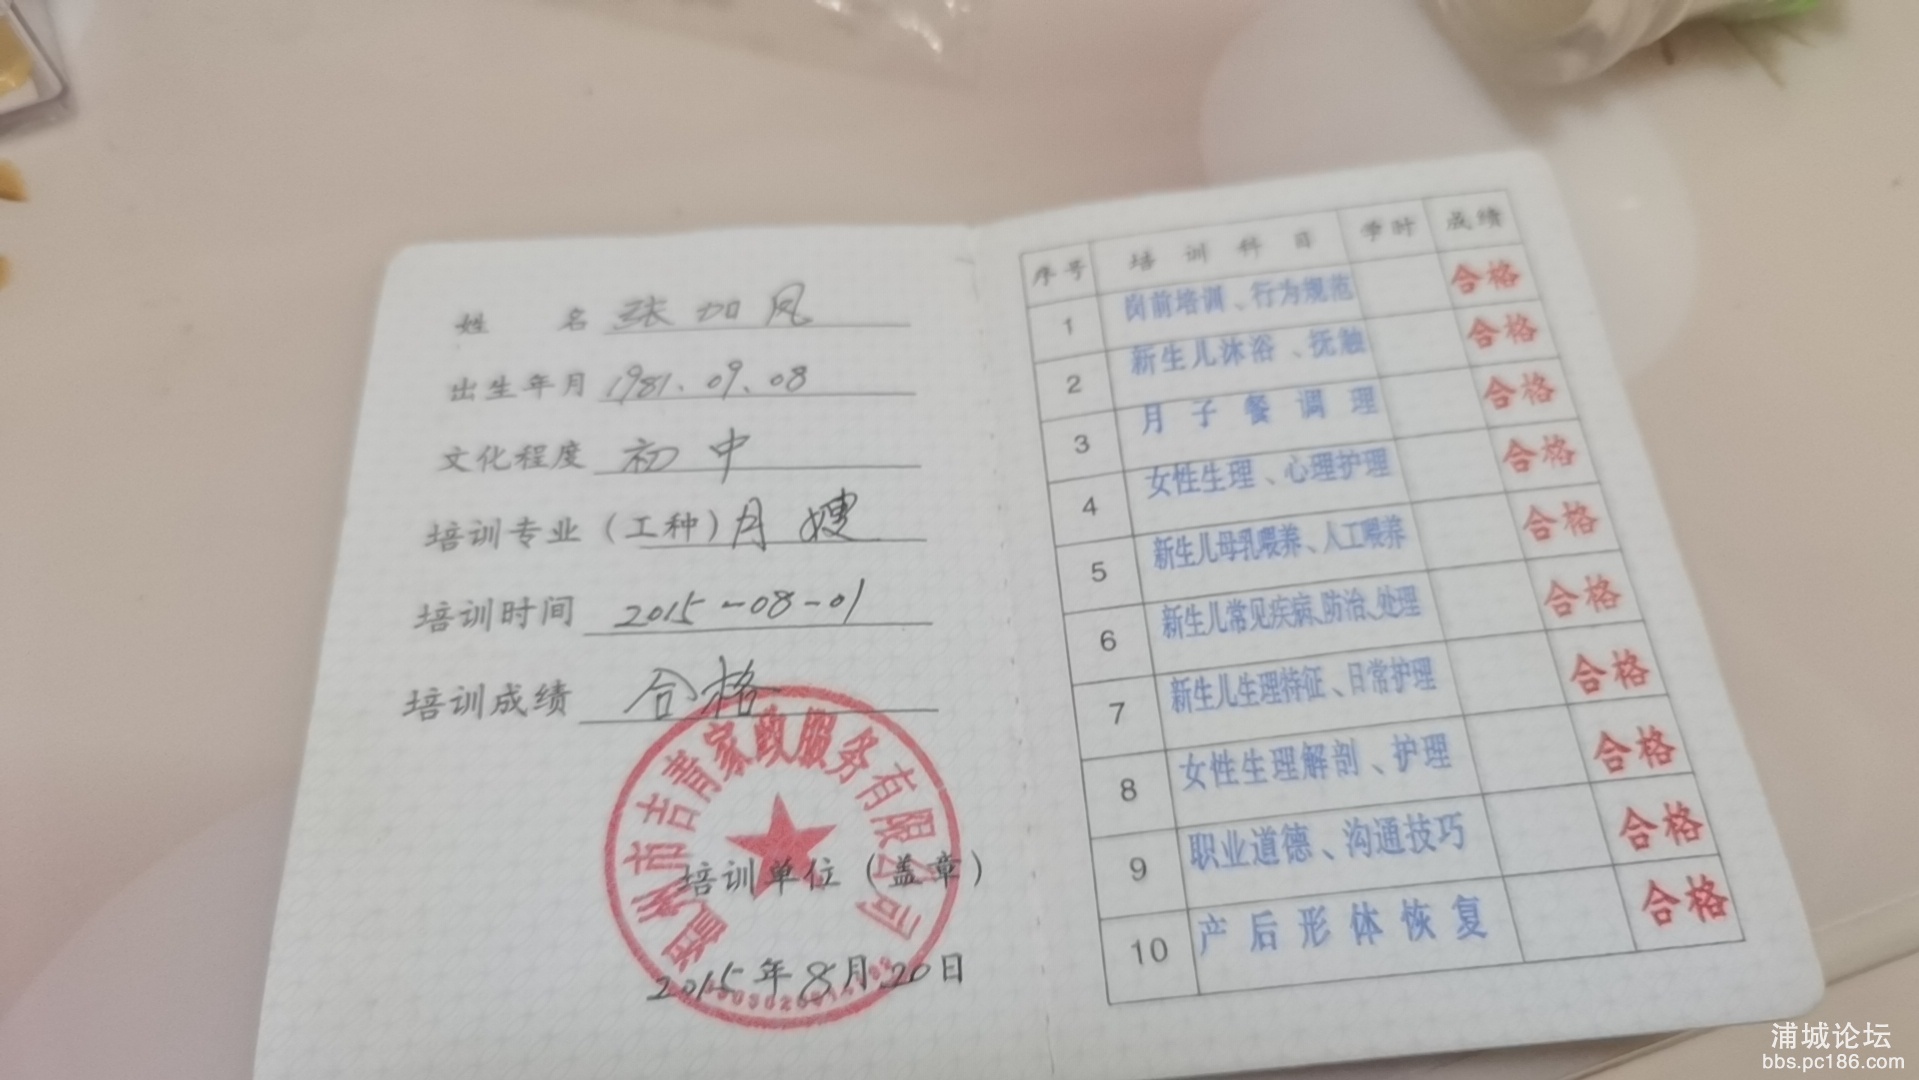 姓 名 张加凤
出生年月 1981.09.08
文化程度 初中
培训专业（工种）月嫂
培训时间 2015-08-01
培训成绩 合格
温州市吉青家政服务有限公司
培训单位（盖章）
2015年8月20日
序号 培训科目 学时 成绩
1 岗前培训、行为规范 合格
2 新生儿沐浴、抚触 合格
3 月子餐调理 合格
4 女性生理、心理护理 合格
5 新生儿母乳喂养、人工喂养 合格
6 新生儿常见疾病、防治、处理 合格
7 新生儿生理特征、日常护理 合格
8 女性生理解剖、护理 合格
9 职业道德、沟通技巧 合格
10 产后形体恢复 合格
浦城论坛
bbs.pc186.com